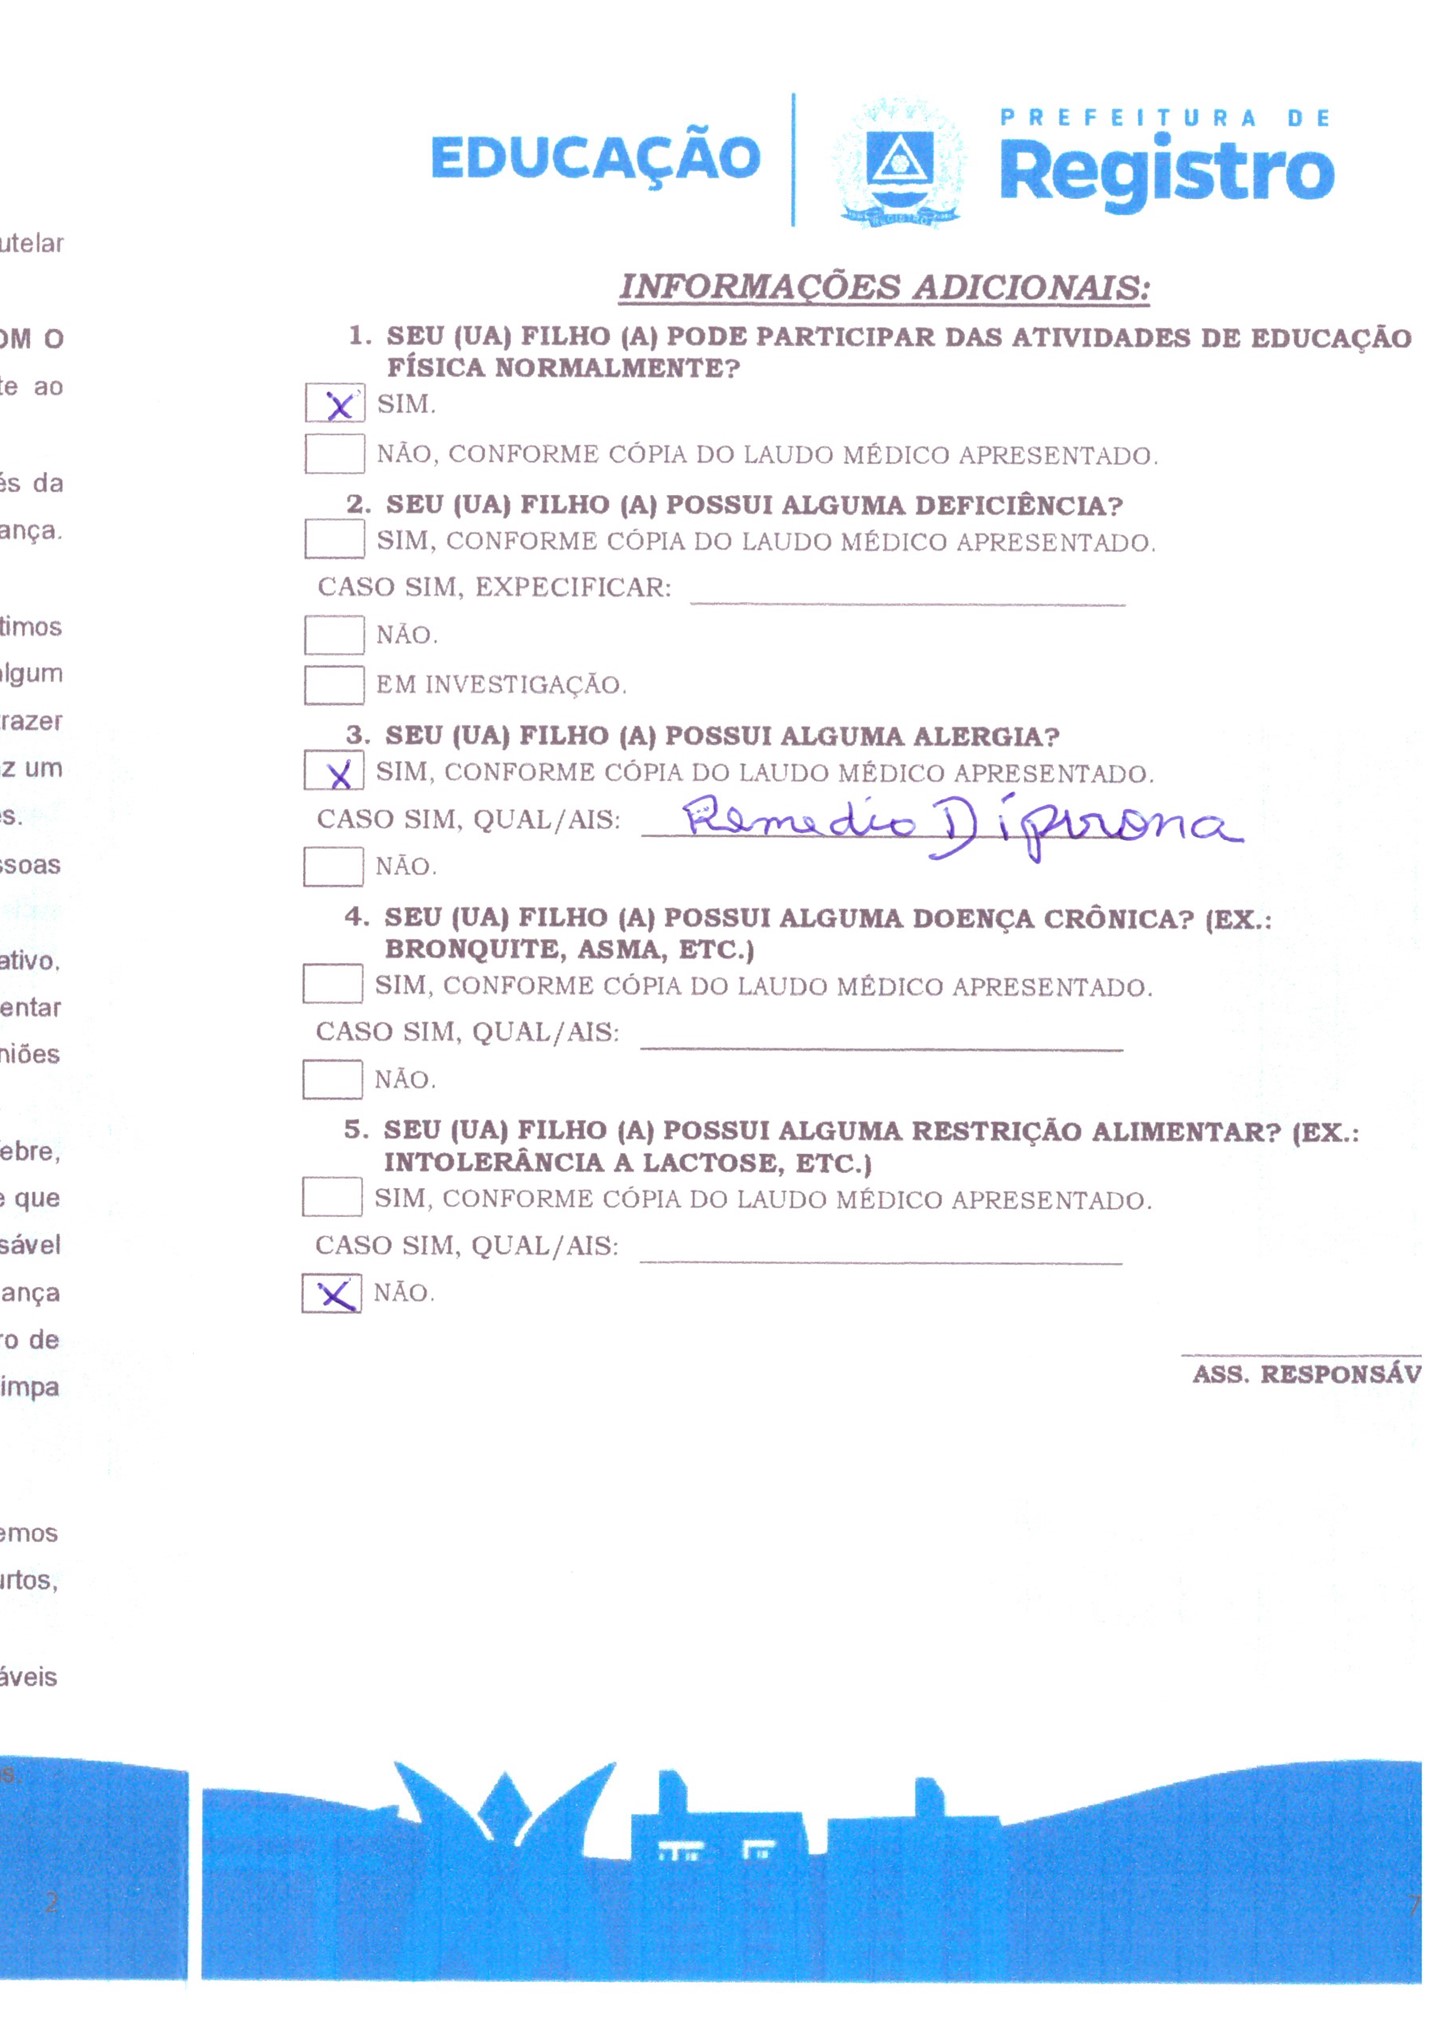 EDUCAÇÃO
PREFEITURA DE
Registro
REGISTRO
utelar
OM O
te ao
és da
ança.
timos
algum
razer
z um
s.
ssoas
ativo.
entar
niões
ebre,
e que
sável
ança
ro de
impa
emos
urtos,
áveis
s.
2
INFORMAÇÕES ADICIONAIS:
1. SEU (UA) FILHO (A) PODE PARTICIPAR DAS ATIVIDADES DE EDUCAÇÃO
FÍSICA NORMALMENTE?
X SIM.
NÃO, CONFORME CÓPIA DO LAUDO MÉDICO APRESENTADO.
2. SEU (UA) FILHO (A) POSSUI ALGUMA DEFICIÊNCIA?
SIM, CONFORME CÓPIA DO LAUDO MÉDICO APRESENTADO.
CASO SIM, EXPECIFICAR:
NÃO.
EM INVESTIGAÇÃO.
3. SEU (UA) FILHO (A) POSSUI ALGUMA ALERGIA?
X SIM, CONFORME CÓPIA DO LAUDO MÉDICO APRESENTADO.
CASO SIM, QUAL/AIS: Remedio Dipirona
NÃO.
4. SEU (UA) FILHO (A) POSSUI ALGUMA DOENÇA CRÔNICA? (EX.:
BRONQUITE, ASMA, ETC.)
SIM, CONFORME CÓPIA DO LAUDO MÉDICO APRESENTADO.
CASO SIM, QUAL/AIS:
NÃO.
5. SEU (UA) FILHO (A) POSSUI ALGUMA RESTRIÇÃO ALIMENTAR? (EX.:
INTOLERÂNCIA A LACTOSE, ETC.)
SIM, CONFORME CÓPIA DO LAUDO MÉDICO APRESENTADO.
CASO SIM, QUAL/AIS:
X NÃO.
ASS. RESPONSÁV
7